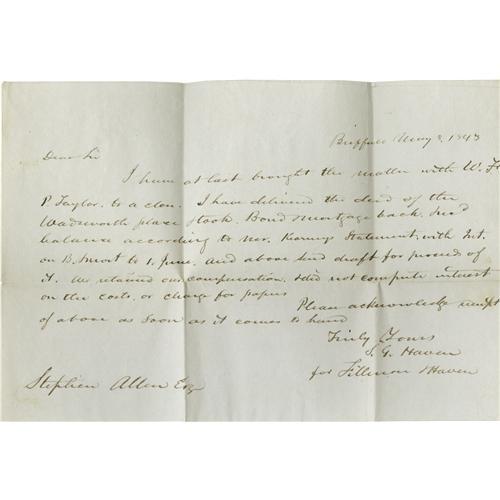 Buffalo May 8, 1843
Dear Sir
I have at last brought the matter with W.
P. Taylor. to a close. I have delivered the deed of the
Wadsworth place took Bond Mortgage back. Rec'd
balance according to Mr. Statement, with Int.
on B. Mort to 1. June. and above send draft for proceeds of
it. We retained our compensation. & did not compute interest
on the costs. or charge for papers
Please acknowledge receipt
of above as soon as it comes to hand
Truly Yours
S. G. Haven
for Fillmore & Haven
Stephen Allen Esq